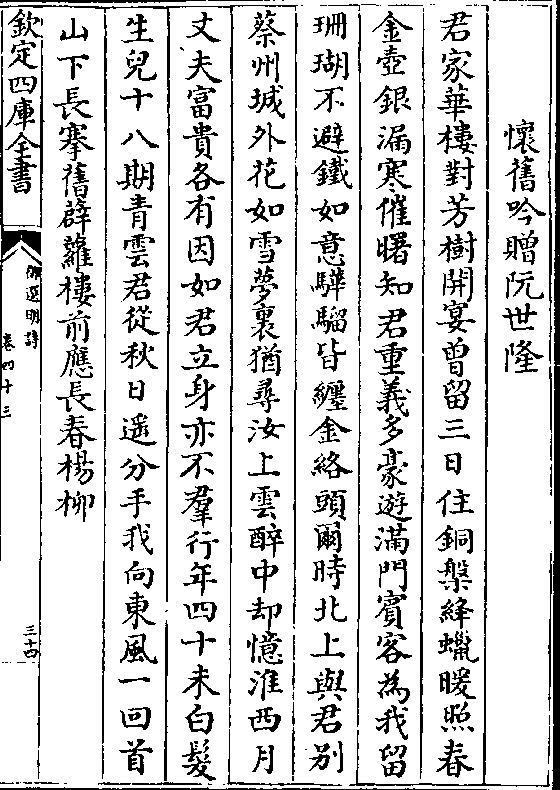 懷舊吟贈阮世隆
君家華樓對芳樹開宴曾留三日住銅槃絳蠟暖照春
金壺銀漏寒催曙知君重義多豪遊滿門賓客為我留
珊瑚不避鐵如意驊騮皆纏金絡頭爾時北上與君別
蔡州城外花如雪夢裏猶尋汝上雲醉中却憶淮西月
丈夫富貴各有因如君立身亦不羣行年四十未白髮
生兒十八期青雲君從秋日遥分手我向東風一回首
山下長搴舊薜蘿樓前應長春楊柳
欽定四庫全書
御選明詩
卷四十三
三十四